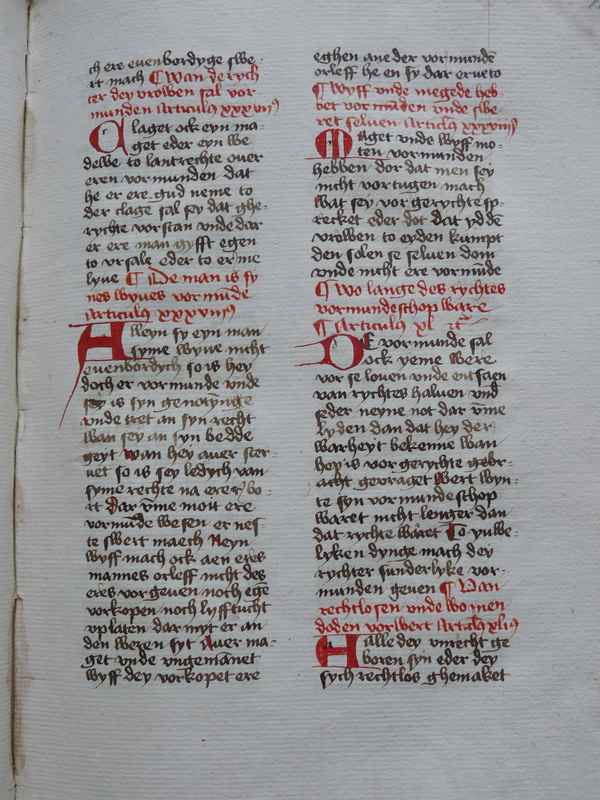 ch ere euenbordyge swe-
rt mach ¶ Wan de rych
ter dey vrowen sal vor
munden Articulus xxxvii
Claget ock eyn ma-
get eder eyn we
dewe to lantrechte ouer
eren vormunden dat
he er ere gud neme to
der clage sal sey dat ghe-
rychte vorstan vnde dar
er ere man gyfft egen
to vrsale eder to er me
lyue ¶ De man is sy
nes wyues vormude
Articulus xxxviii
Alleyn sy eyn man
syme wyue nicht
euenbordych so is hey
doch er vormunde vnde
sey is syn genotynge
vnde tret an syn recht
wan sey an syn bedde
geyt wan hey auer ster-
uet so is sey ledych van
syme rechte na erer bo-
rt Dar vme mott ere
vormude wesen er nes
te swert maech Neyn
wyff mach ock aen eres
mannes orleff nicht des
eres vorgeuen noch ege
vorkopen noch lyfftucht
vplaten dar myt er an
den wezen syt Auer ma-
get vnde vngemanet
wyff dey vorkopet ere
eghen ane der vormunde
orleff he en sy dar erue to
¶ Wyff vnde megede heb-
bet vormuden vnde swe
ret seluen Articlus xxxviiii
Maget vnde wyff mo-
ten vormunden
hebben dor dat men sey
nicht vortugen mach
wat sey vor gerychte sp-
recket eder dot dat yd de
vrowen to eyden kumpt
den solen se seluen don
vnde nicht ere vormude
¶ Wo lange des rychtes
vormundeschop ware
¶ Articulus xl
De vormunde sal
ock veme were
vor se louen vnde entfaen
van rychtes haluen vnd
seder neyne not dar vme
lyden dan dat hey der
warheyt bekenne wan
hey is vor gerychte gebr-
acht gevraget Wert wyn-
te syn vormundeschop
waret nicht lenger dan
dat rychte waret To yuwe-
lyken dynge mach dey
rychter sunderlyke vor-
munden geuen ¶ Van
rechtlosen vnde wo men
doden vorwert Articlus xli
Alle dey vnrecht ge
boren syn eder dey
sych rechtlos ghemaket